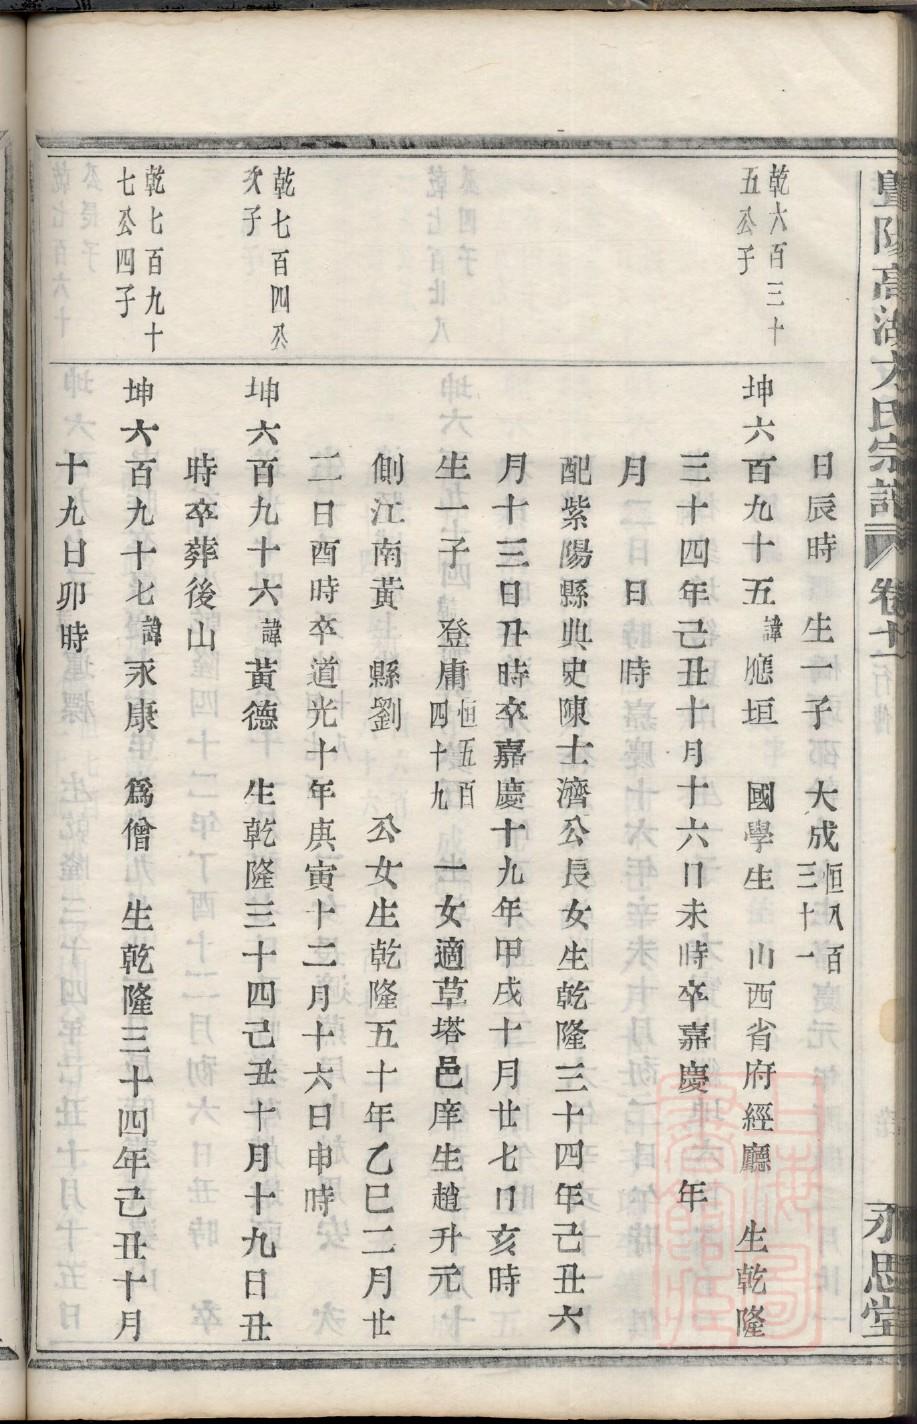 暨陽高湖方氏宗譜 卷十 永思堂
日辰時 生一子 大成恒八百三十一
乾六百三十五公子
坤六百九十五諱應垣 國學生 山西省府經廳 生乾隆
三十四年己丑十月十六日未時卒嘉慶 年
月 日 時
配紫陽縣典史陳士濟公長女生乾隆三十四年己丑六
月十三日丑時卒嘉慶十九年甲戌十月廿七日亥時
生一子 登庸恒五百四十九 一女適草塔邑庠生趙升元
側江南黃 縣劉 公女生乾隆五十年乙巳二月廿
二日酉時卒道光十年庚寅十二月十六日申時
乾七百四公次子
坤六百九十六諱黃德 生乾隆三十四己丑十月十九日丑
時卒葬後山
乾七百九十七公四子
坤六百九十七諱永康 爲僧 生乾隆三十四年己丑十月
十九日卯時